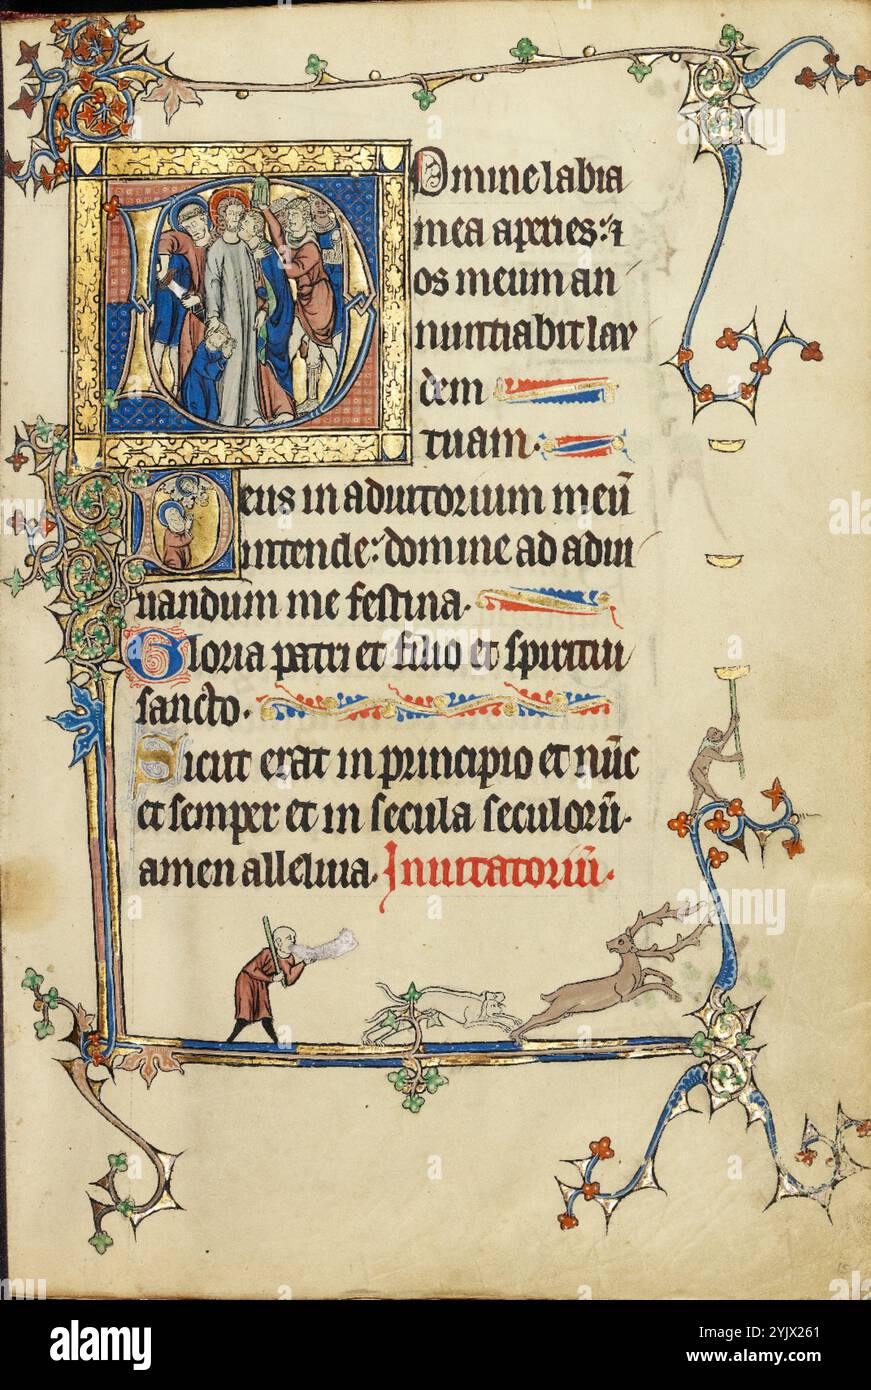 Domine labia
mea aperies: ⁊
os meum an
nuntiabit lau
dem
tuam.
Deus in adiutorium meū
intende: domine ad adiu
uandum me festina.
Gloria patri et filio et spiritui
sancto.
Sicut erat in principio et nūc
et semper et in secula seculorū.
amen alleluia. Inuitatoriū.
alamy
alamy
alamy
Image ID: 2YJX261
www.alamy.com